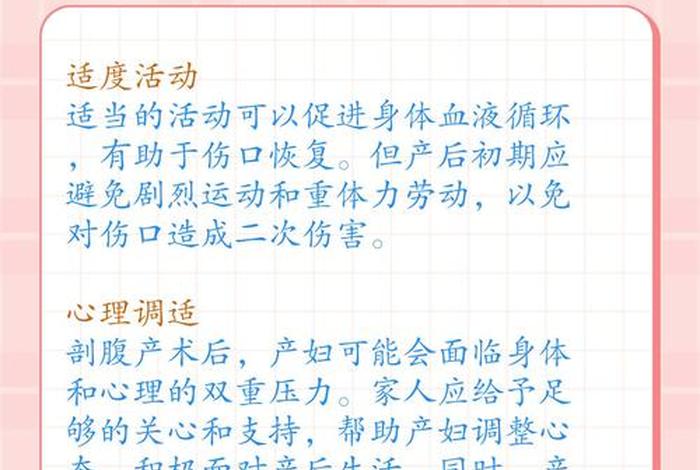 适度活动
适当的活动可以促进身体血液循环
，有助于伤口恢复。但产后初期应
避免剧烈运动和重体力劳动，以免
对伤口造成二次伤害。
心理调适
剖腹产术后，产妇可能会面临身体
和心理的双重压力。家人应给予足
够的关心和支持，帮助产妇调整心
态，积极面对产后生活。同时，产